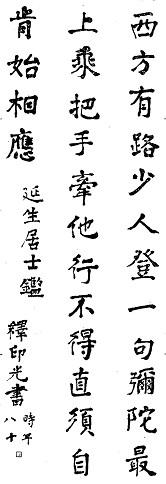 西方有路少人登一句彌陀最
上乘把手牽他行不得直須自
肯始相應
延生居士鑑
釋印光書
時年
八十